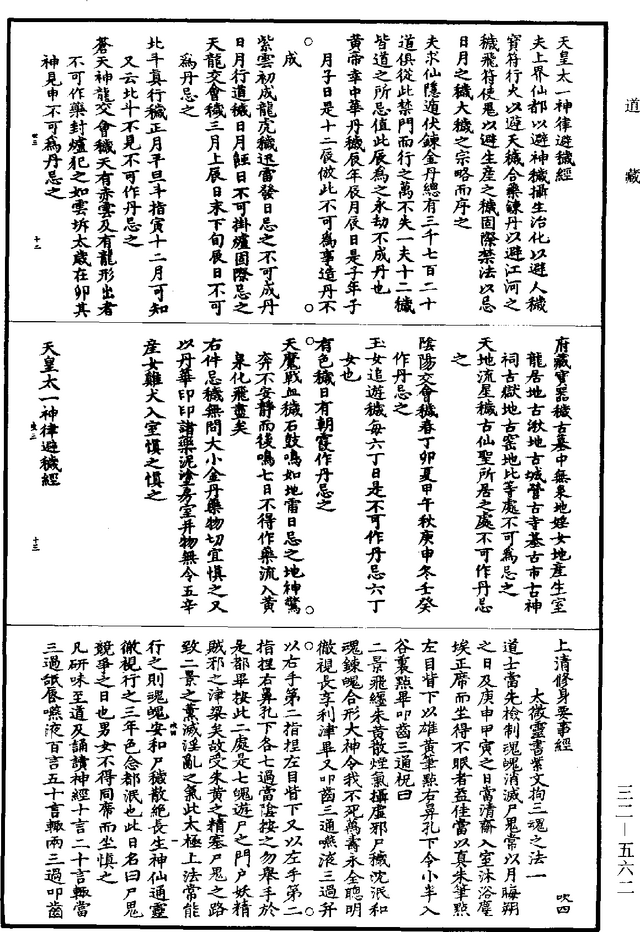 道藏
天皇太一神律避穢經
夫上界仙都以避神穢攝生治化以避人穢
寶符行火以避天穢合藥鍊丹以避江河之
穢飛符使鬼以避生產之穢固際禁法以忌
日月之穢大穢之宗略而序之
夫求仙隱遁伏鍊金丹總有三千七百二十
道俱從此禁門而行之萬不失一夫十二穢
皆道之所忌值此辰為之永劫不成丹也
黃帝幸中華丹穢辰年辰月辰日是子年子
月子日是十二辰倣此不可為事造丹不
成
紫雲初成龍虎穢迅雷發日忌之不可成丹
日月行道穢日月蝕日不可掛爐固際忌之
天龍交會穢三月上辰日末下旬辰日不可
為丹忌之
北斗真行穢正月平旦斗指寅十二月可知
又云北斗不見不可作丹忌之
蒼天神龍交會穢天有赤雲及有龍形出者
不可作藥封爐犯之如雲坼太歲在卯其
神見申不可為丹忌之
十二
府藏寶器穢古墓中無氣地婬女地產生室
龍居地古湫地古城營古寺基古市古神
祠古獄地古窯地比等處不可為忌之
天地流星穢古仙聖所居之處不可作丹忌
之
陰陽交會穢春丁卯夏甲午秋庚申冬壬癸
作丹忌之
玉女追遊穢每六丁日是不可作丹忌六丁
女也
有色穢日有朝霞作丹忌之
天魔戰血穢石鼓鳴如地雷日忌之地神驚
奔不安靜而後鳴七日不得作藥流入黃
泉化飛盡矣
右件忌穢無問大小金丹藥物切宜慎之又
以丹華印印諸藥泥塗房室并物無令五辛
產女雞犬入室慎之慎之
天皇太一神律避穢經
十三
上清修身要事經
吹四
太微靈書紫文拘三魂之法一
道士當先檢制魂魄消滅尸鬼常以月晦朔
之日及庚申甲寅之日當清齋入室沐浴塵
埃正席而坐得不眠者益佳當以真朱筆點
左目眥下以雄黃筆點右鼻孔下令小半入
谷裏點畢叩齒三通祝曰
二景飛纏朱黃散煙氣攝虛邪尸穢沈泯和
魂鍊魄合形大神令我不死萬壽永全聰明
徹視長享利津畢又叩齒三通嚥液三過并
以右手第二指捏左目眥下又以左手第二
指捏右鼻孔下各七過當陰按之勿舉手於
是都畢按此二處是七魄遊尸之門戶妖精
賊邪之津梁矣故受朱黃之精塞尸鬼之路
致二景之薰滅淫亂之氣此太極上法常能
行之則魂魄安和尸穢散絕長生神仙通靈
徹視行之三年色念都泯也此日名曰尸鬼
競爭之日也男女不得同席而坐慎之
凡研味至道及誦讀神經十言二十言輒當
三過舐唇嚥液百言五十言輒兩三過叩齒
三二—五六二